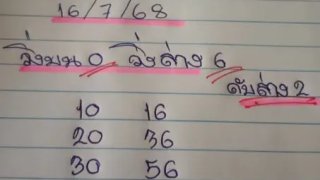 16/7/68
วิ่งบน 0 วิ่งล่าง 6
ดับล่าง 2
10 16
20 36
30 56